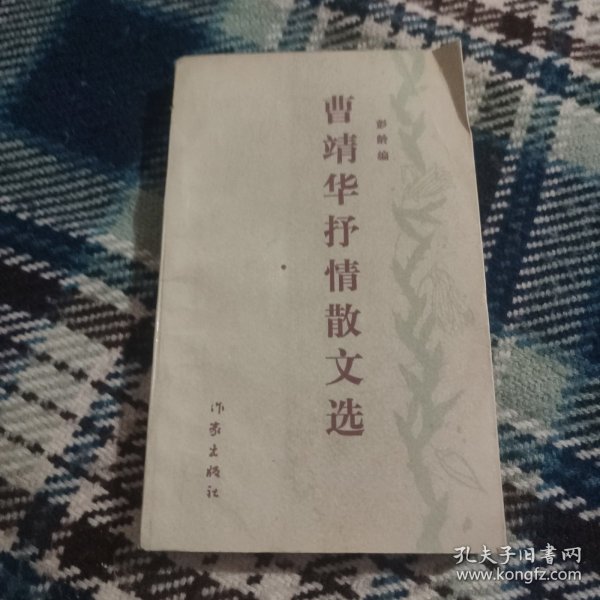 彭龄编
曹靖华抒情散文选
作家出版社
孔夫子旧书网
www.kongfz.com